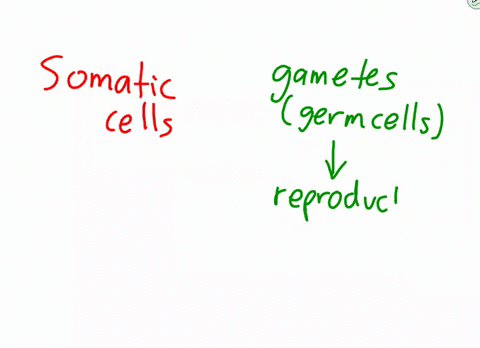 Somatic
cells
gametes
(germcells)
↓
reproduc